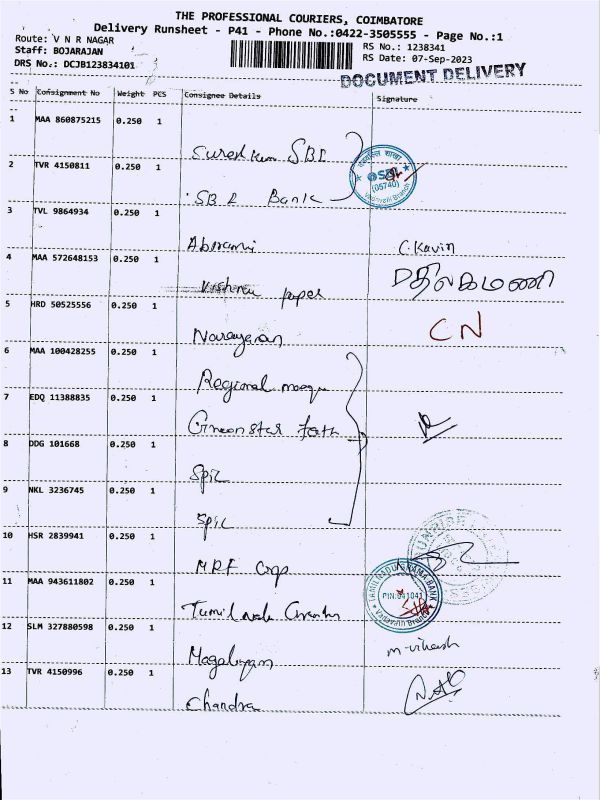 THE PROFESSIONAL COURIERS, COIMBATORE
Delivery Runsheet - P41 - Phone No.:0422-3505555 - Page No.:1
Route: V N R NAGAR
Staff: BOJARAJAN
RS No.: 1238341
DRS No.: DCJB123834101
RS Date: 07-Sep-2023
DOCUMENT DELIVERY
S No Consignment No Weight PCS Consignee Details Signature
1 MAA 860875215 0.250 1
SBI
2 TVR 4150811 0.250 1
SBI Bank
SBI
(05740)
Vadavalli Branch
3 TVL 9864934 0.250 1
Abirami C.Kavin
4 MAA 572648153 0.250 1
paper
5 HRD 50525556 0.250 1
Narayanan CN
6 MAA 100428255 0.250 1
Regional
7 EDQ 11388835 0.250 1
Greenstar
8 DDG 101668 0.250 1
Spic
9 NKL 3236745 0.250 1
Spic
10 HSR 2839941 0.250 1
MRF Corp
11 MAA 943611802 0.250 1
TAMILNADU GRAMA BANK
PIN:641041
Vadavalli Branch
Tamil nadu
12 SLM 327880598 0.250 1
13 TVR 4150996 0.250 1
Chandra